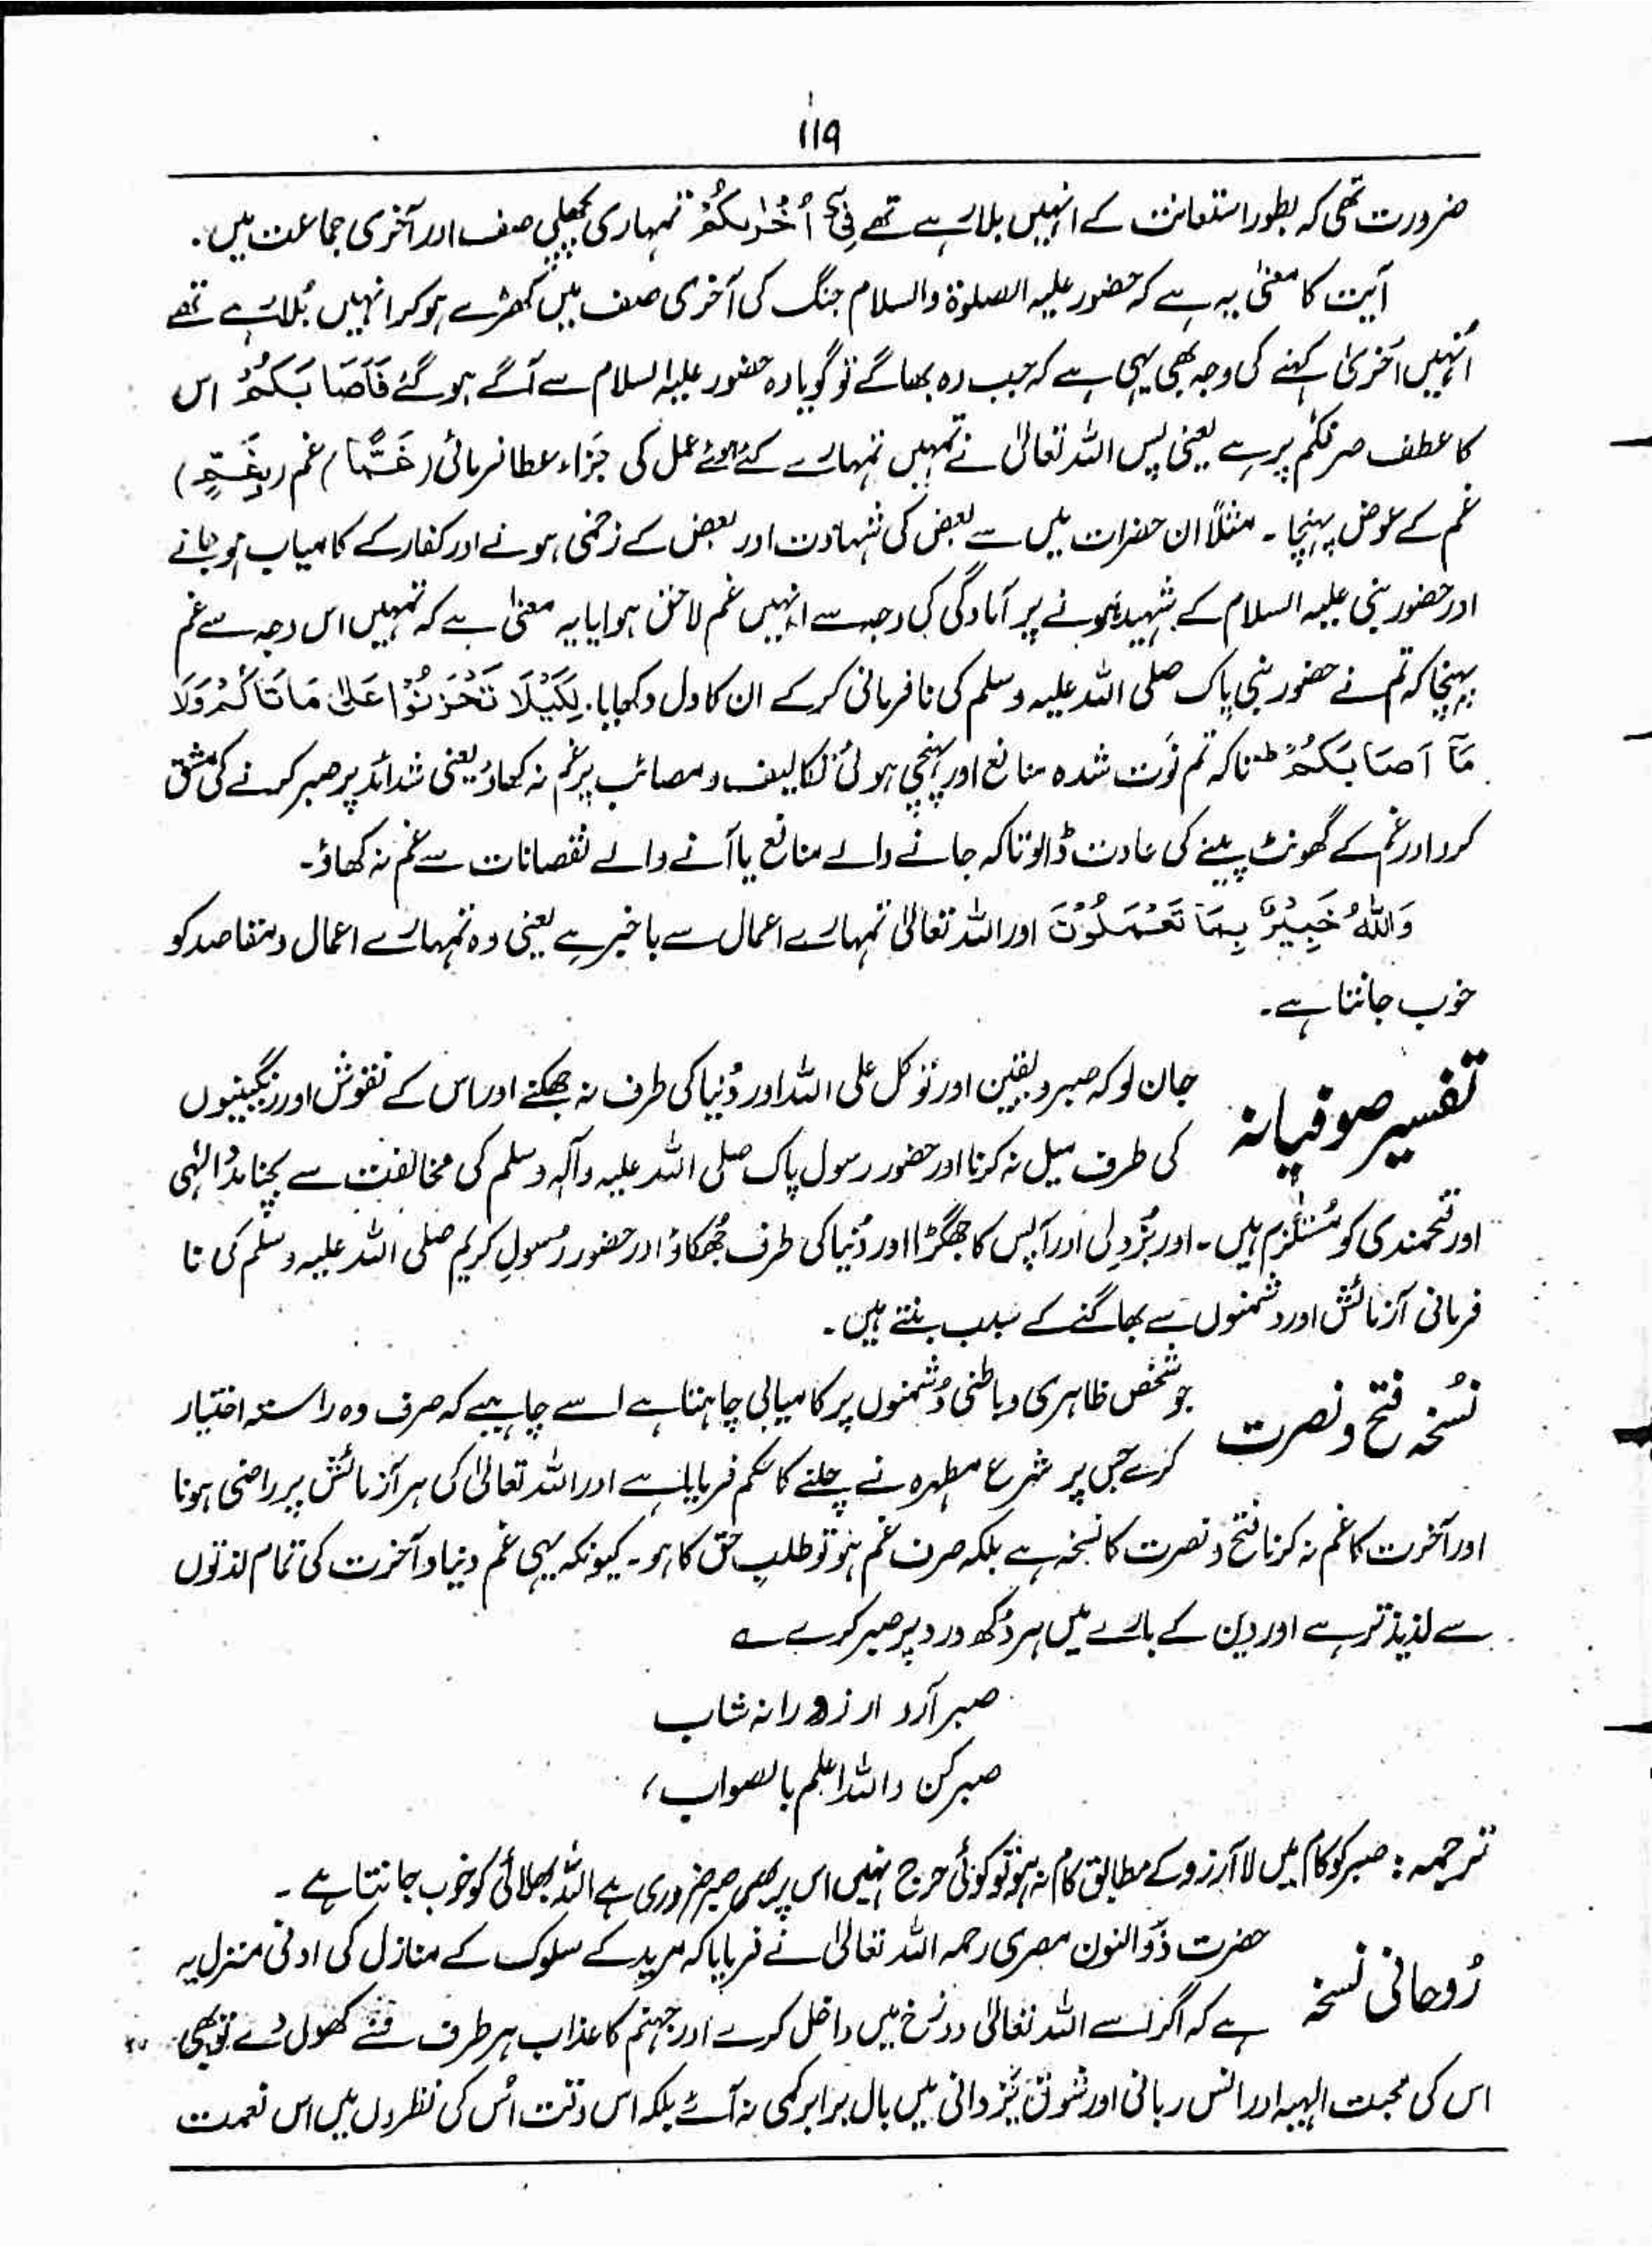 ۱۱۹
ضرورت تھی کہ بطور استعانت کے انہیں بلا رہے تھے فِیْٓ اُخْرٰىکُمْ تمہاری پچھلی صف اور آخری جماعت میں۔
آیت کا معنیٰ یہ ہے کہ حضور علیہ الصلوٰۃ والسلام جنگ کی آخری صف میں کھڑے ہو کر انہیں بُلا رہے تھے
اُنہیں اُخریٰ کہنے کی وجہ بھی یہی ہے کہ جب وہ بھاگے تو گویا وہ حضور علیہ السلام سے آگے ہو گئے فَاَصَابَکُمْ اس
کا عطف صرفکم پر ہے یعنی پس اللہ تعالیٰ نے تمہیں تمہارے کئے ہوئے عمل کی جزاء عطا فرمائی (غَمًّا) غم (بِغَمٍّ)
غم کے عوض پہنچا ۔ مثلاً ان حضرات میں سے بعض کی شہادت اور بعض کے زخمی ہونے اور کفار کے کامیاب ہو جانے
اور حضور نبی علیہ السلام کے شہید ہونے پر آمادگی کی وجہ سے انہیں غم لاحق ہوا یا یہ معنیٰ ہے کہ تمہیں اس وجہ سے غم
پہنچا کہ تم نے حضور نبی پاک صلی اللہ علیہ وسلم کی نافرمانی کر کے ان کا دل دکھایا۔ لِکَیْلَا تَحْزَنُوْا عَلٰی مَا فَاتَکُمْ وَلَا
مَآ اَصَابَکُمْ ؕ تاکہ تم فوت شدہ منافع اور پہنچی ہوئی تکالیف و مصائب پر غم نہ کھاؤ یعنی شدائد پر صبر کرنے کی مشق
کرو اور غم کے گھونٹ پینے کی عادت ڈالو تاکہ جانے والے منافع یا آنے والے نقصانات سے غم نہ کھاؤ۔
وَاللّٰهُ خَبِیْرٌۢ بِمَا تَعْمَلُوْنَ اور اللہ تعالیٰ تمہارے اعمال سے باخبر ہے یعنی وہ تمہارے اعمال و مقاصد کو
خوب جانتا ہے۔
تفسیر صوفیانہ جان لو کہ صبر و یقین اور توکل علی اللہ اور دُنیا کی طرف نہ جھکنے اور اس کے نقوش اور رنگینیوں
کی طرف میل نہ کرنا اور حضور رسول پاک صلی اللہ علیہ وآلہ وسلم کی مخالفت سے بچنا مددِ الٰہی
اور فتحمندی کو مُستلزم ہیں۔ اور بُزدلی اور آپس کا جھگڑا اور دُنیا کی طرف جُھکاؤ اور حضور رسولِ کریم صلی اللہ علیہ وسلم کی نا
فرمانی آزمائش اور دشمنوں سے بھاگنے کے سبب بنتے ہیں۔
نُسخہ فتح و نصرت جو شخص ظاہری و باطنی دُشمنوں پر کامیابی چاہتا ہے اسے چاہیے کہ صرف وہ راستہ اختیار
کرے جس پر شرع مطہرہ نے چلنے کا حکم فرمایا ہے اور اللہ تعالیٰ کی ہر آزمائش پر راضی ہونا
اور آخرت کا غم نہ کرنا فتح و نصرت کا نسخہ ہے بلکہ صرف غم ہو تو طلبِ حق کا ہو۔ کیونکہ یہی غم دنیا و آخرت کی تمام لذتوں
سے لذیذ تر ہے اور دین کے بارے میں ہر دُکھ درد پر صبر کرے ؎
صبر آرد آرزو را نہ شتاب
صبر کن واللہ اعلم بالصواب،
ترجمہ: صبر کو کام میں لا آرزو کے مطابق کام نہ ہو تو کوئی حرج نہیں اس پر بھی صبر ضروری ہے اللہ بھلائی کو خوب جانتا ہے ۔
رُوحانی نسخہ حضرت ذوالنون مصری رحمہ اللہ تعالیٰ نے فرمایا کہ مرید کے سلوک کے منازل کی ادنیٰ منزل یہ
ہے کہ اگر اسے اللہ تعالیٰ دوزخ میں داخل کرے اور جہنم کا عذاب ہر طرف سے کھول دے تو بھی
اس کی محبت الٰہیہ اور انس ربانی اور شوق یزدانی میں بال برابر کمی نہ آئے بلکہ اس وقت اُس کی نظروں میں اس نعمت